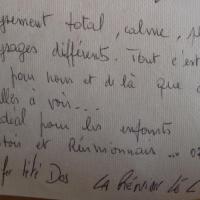 total, calme,
ysages différents. Tout est
pour nous et de là que
llés à voir...
déal pour les enfants
tois et Réunionnais...
fer titi Dos LA RÉUNION LÉ L